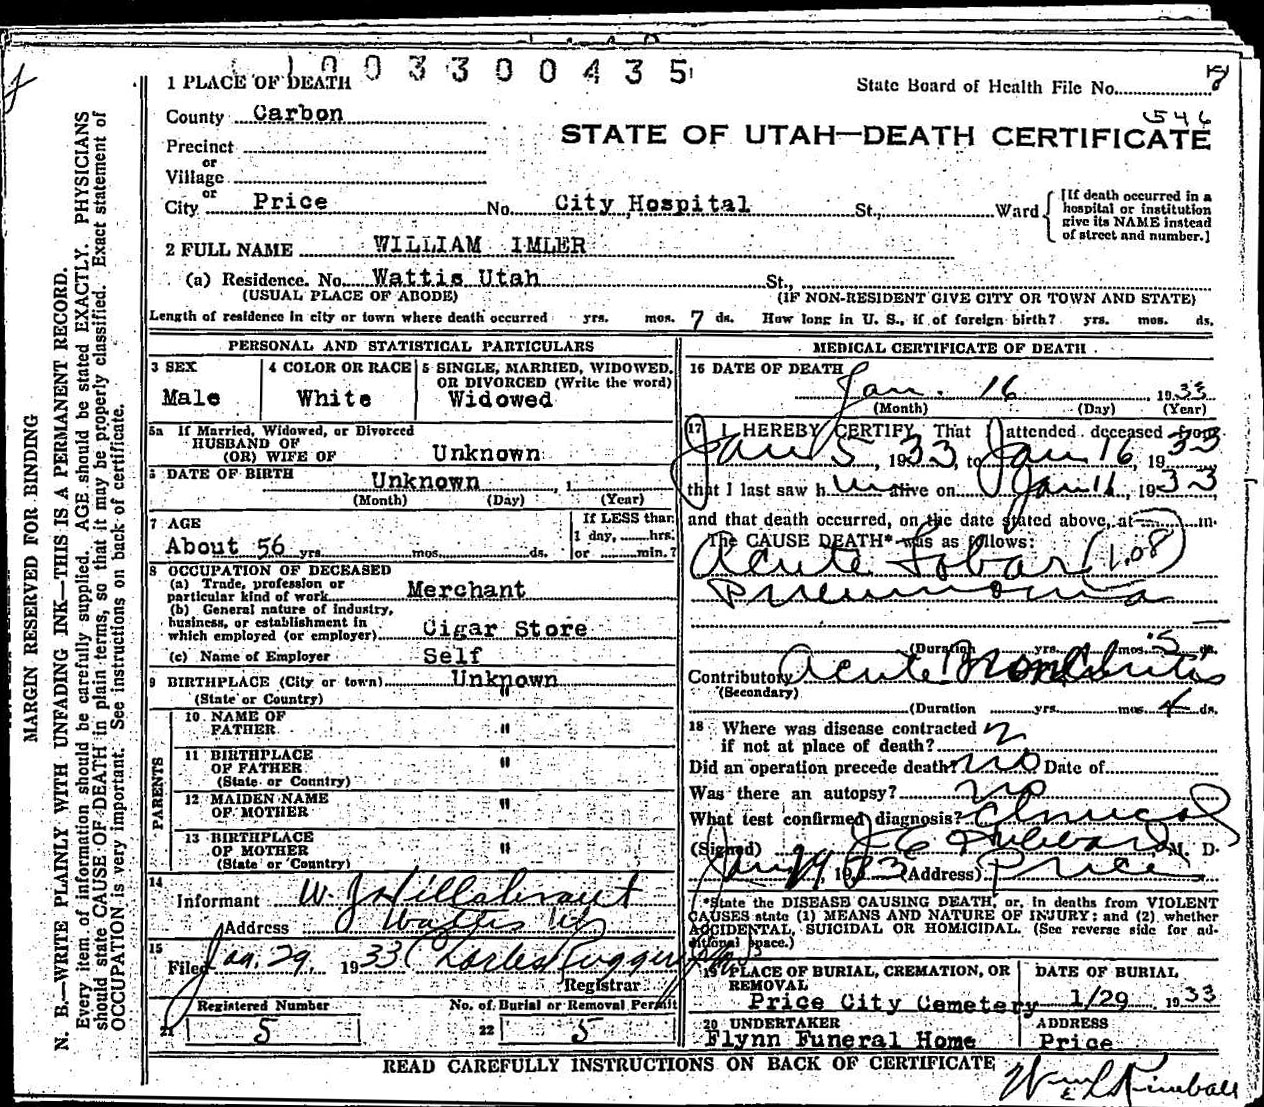 1003300435
1 PLACE OF DEATH
State Board of Health File No.
County Carbon
546
STATE OF UTAH—DEATH CERTIFICATE
Precinct
or
Village
or
City Price No. City Hospital St., Ward
[If death occurred in a
hospital or institution
give its NAME instead
of street and number.]
2 FULL NAME WILLIAM IMLER
(a) Residence. No. Wattis Utah St.,
(USUAL PLACE OF ABODE) (IF NON-RESIDENT GIVE CITY OR TOWN AND STATE)
Length of residence in city or town where death occurred yrs. mos. 7 ds. How long in U. S., if of foreign birth? yrs. mos. ds.
PERSONAL AND STATISTICAL PARTICULARS
3 SEX 4 COLOR OR RACE 5 SINGLE, MARRIED, WIDOWED,
OR DIVORCED (Write the word)
Male White Widowed
5a If Married, Widowed, or Divorced
HUSBAND OF
(OR) WIFE OF Unknown
6 DATE OF BIRTH Unknown , 1
(Month) (Day) (Year)
7 AGE If LESS than
1 day, hrs.
About 56 yrs. mos. ds. or min.?
8 OCCUPATION OF DECEASED
(a) Trade, profession or
particular kind of work Merchant
(b) General nature of industry,
business, or establishment in
which employed (or employer) Cigar Store
(c) Name of Employer Self
9 BIRTHPLACE (City or town) Unknown
(State or Country) "
PARENTS
10 NAME OF
FATHER "
11 BIRTHPLACE
OF FATHER "
(State or Country)
12 MAIDEN NAME
OF MOTHER "
13 BIRTHPLACE
OF MOTHER "
(State or Country)
14
Informant W. J.
Address Wattis
15
Filed Jan. 29, 1933 Charles Ruggeri
Registrar
Registered Number No. of Burial or Removal Permit
21 5 22 5
MEDICAL CERTIFICATE OF DEATH
16 DATE OF DEATH
Jan. 16 1933
(Month) (Day) (Year)
17 I HEREBY CERTIFY, That I attended deceased from
Jan 5, 1933, to Jan 16, 1933
that I last saw him alive on Jan 16, 1933,
and that death occurred, on the date stated above, at m.
The CAUSE DEATH* was as follows:
Acute Lobar (108)
Pneumonia
(Duration yrs. mos. 5 ds.
Contributory Acute
(Secondary)
(Duration yrs. mos. 4 ds.
18 Where was disease contracted
if not at place of death?
Did an operation precede death? no Date of
Was there an autopsy? no
What test confirmed diagnosis? Clinical
(Signed) J C Hubbard M. D.
Jan 29 1933 (Address) Price
*State the DISEASE CAUSING DEATH, or, in deaths from VIOLENT
CAUSES state (1) MEANS AND NATURE OF INJURY; and (2) whether
ACCIDENTAL, SUICIDAL OR HOMICIDAL. (See reverse side for ad-
ditional space.)
19 PLACE OF BURIAL, CREMATION, OR
REMOVAL
Price City Cemetery
DATE OF BURIAL
1/29 1933
20 UNDERTAKER ADDRESS
Flynn Funeral Home Price
READ CAREFULLY INSTRUCTIONS ON BACK OF CERTIFICATE
MARGIN RESERVED FOR BINDING
N. B.—WRITE PLAINLY WITH UNFADING INK—THIS IS A PERMANENT RECORD.
Every item of information should be carefully supplied. AGE should be stated EXACTLY. PHYSICIANS
should state CAUSE OF DEATH in plain terms, so that it may be properly classified. Exact statement of
OCCUPATION is very important. See instructions on back of certificate.